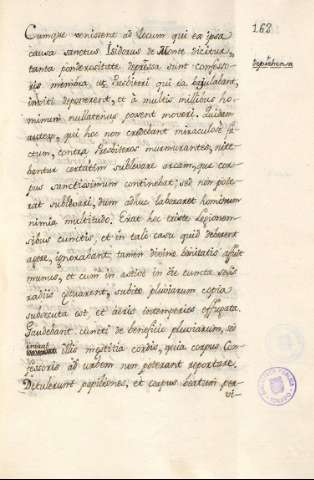 168
Cumque venissent ad Locum qui ex ipsa
causa sanctus Isidorus de Monte dicitur,
tanta ponderositate depressa sunt compatrio
membra ut Presbiteri qui ea bajulabant,
inviti deponerent, et à multis millibus ho-
minum nullatenus possent moveri. Quidam
autem, qui hoc non credebant miraculose fa-
ctum, contra Presbiteros murmurantes, nite-
bantur certatim sublevare arcam, quæ cor-
pus sanctissimum continebat; sed non pote-
rat sublevari, dum adhuc laboraret hominum
nimia multitudo. Erat hoc triste Legionen-
sibus cunctis, et in tali casu quid deberent
agere, ignorabant; tamen divine bonitatis affuit
munus, et cum in astivo in die cuncta solis
radiis essent, subito pluviarum copia
subsecuta est, et aeris intemperies effugata.
Gaudebant cuncti de beneficio pluviarum, sed
inerat illis mestitia cordis, quia corpus Con-
fessoris ad urbem non poterant reportare.
Detulerunt papiliones, et corpus beatum per
vi-